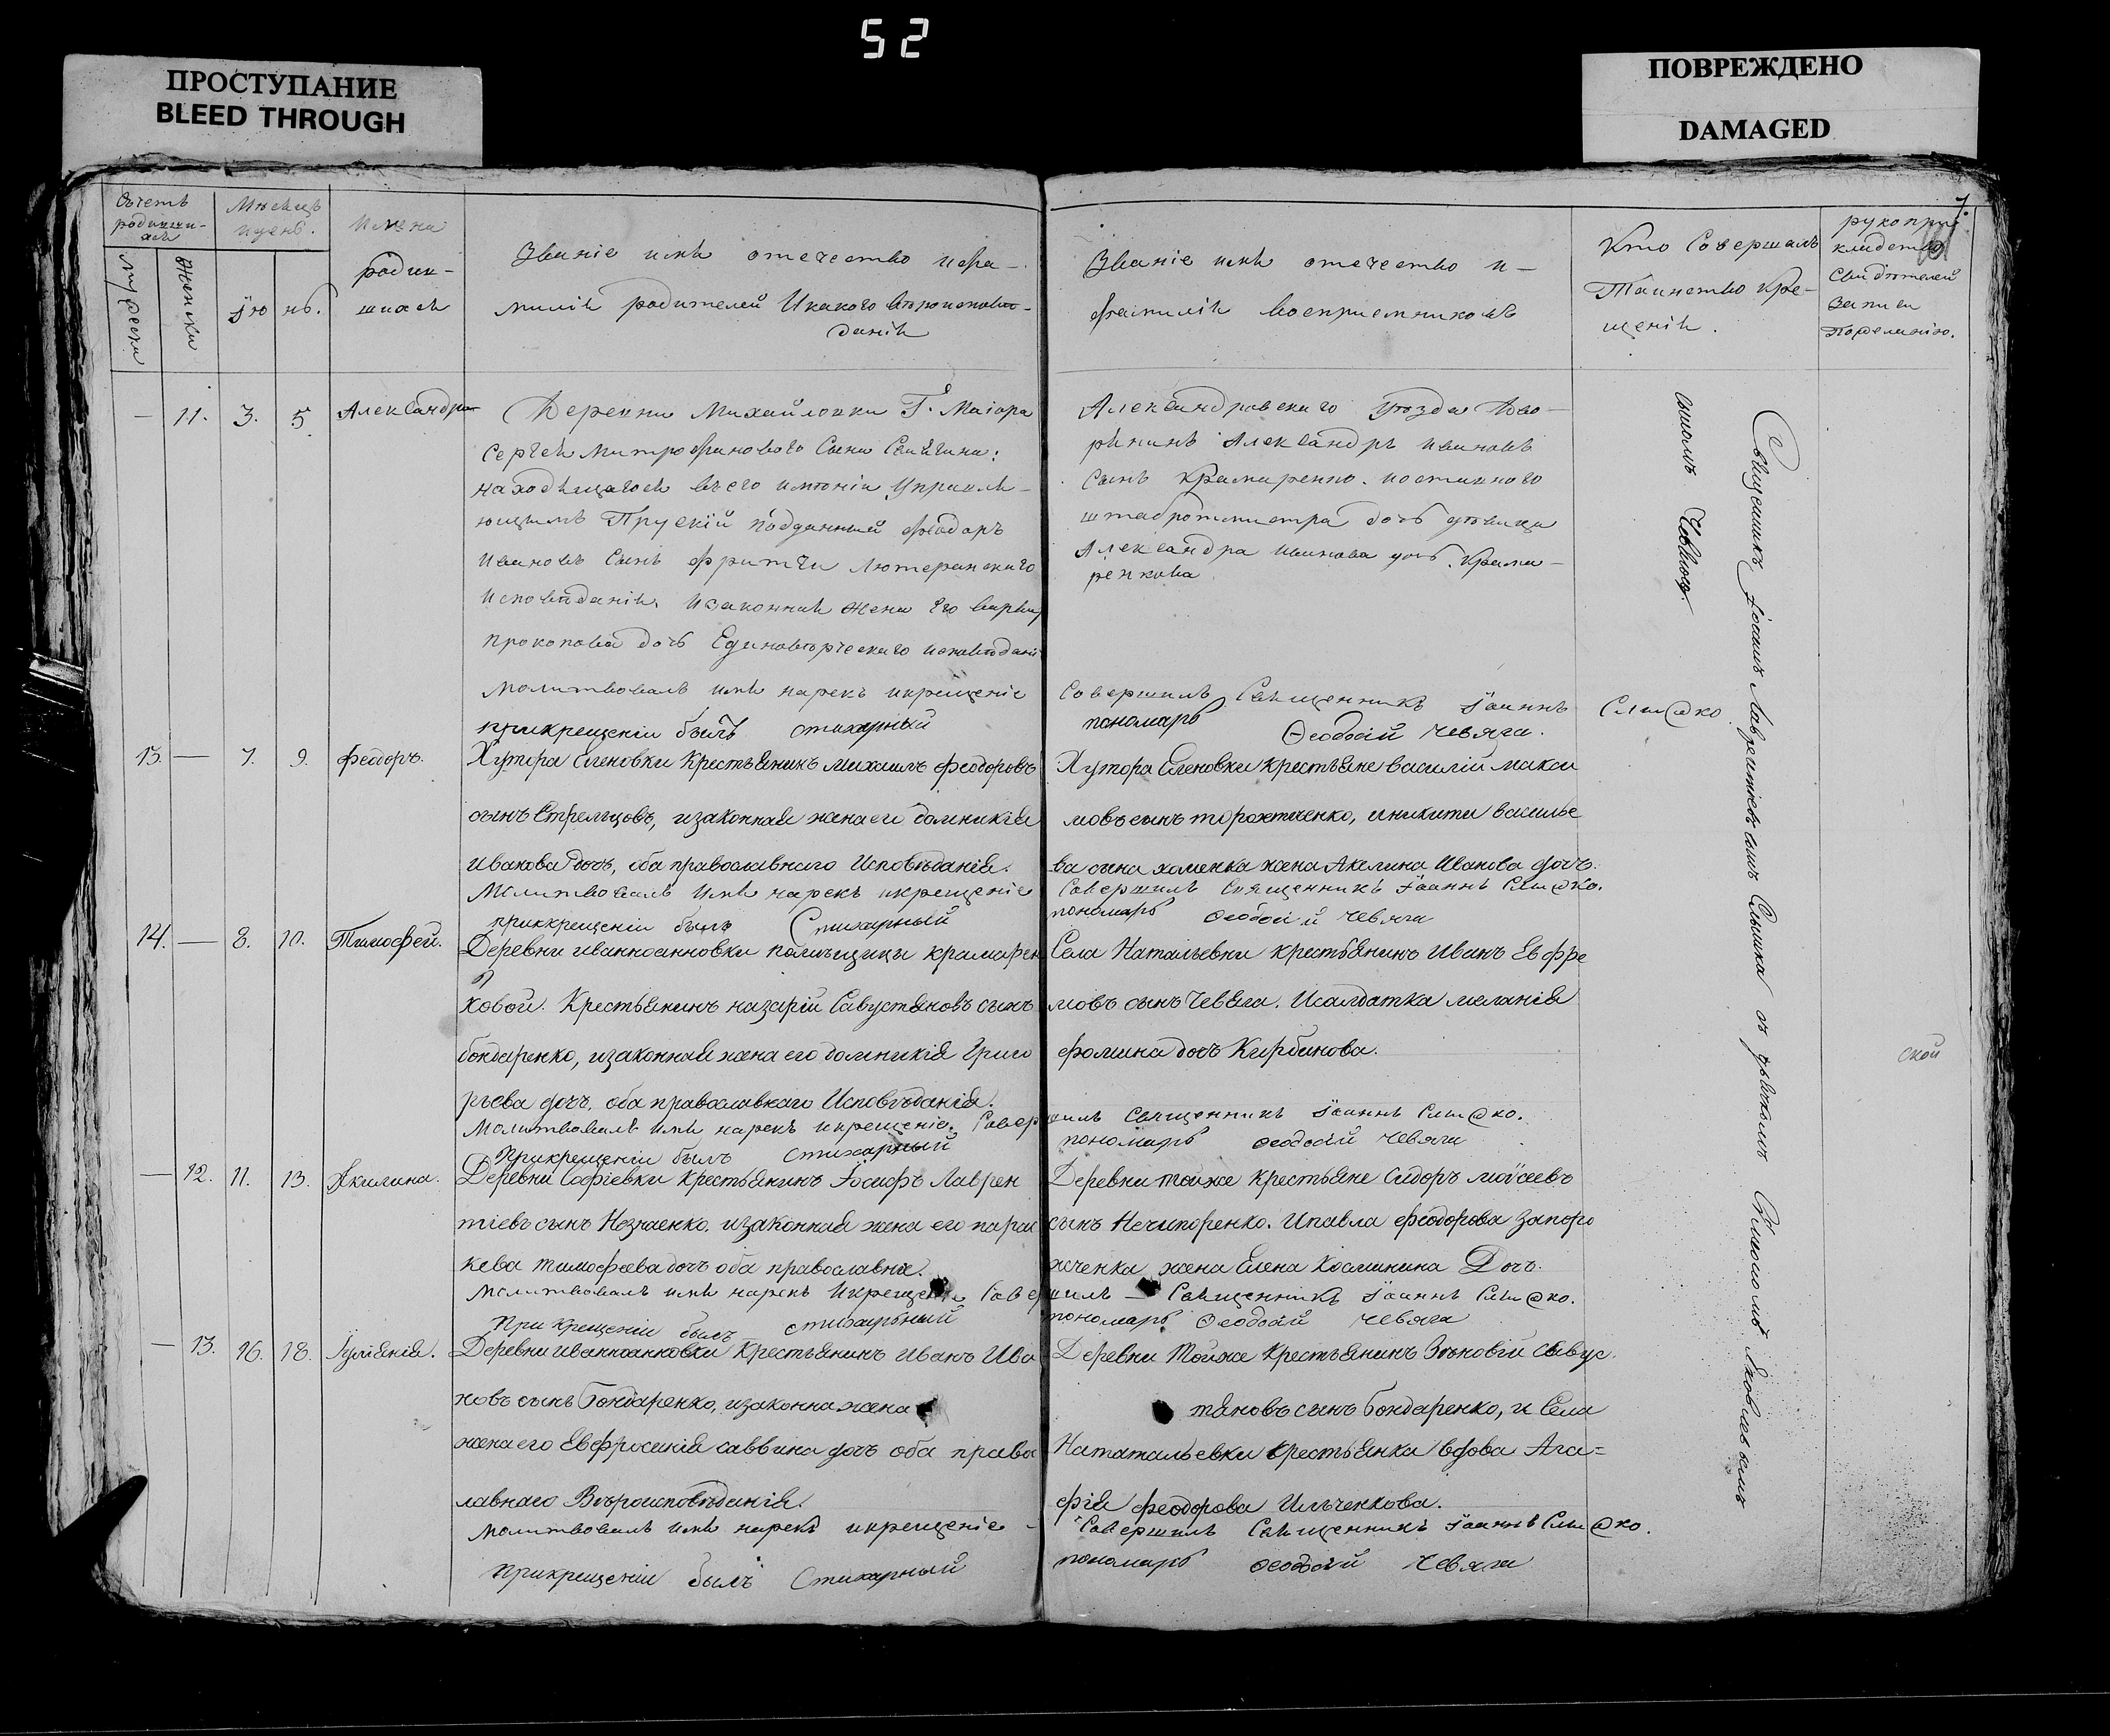 52
ПРОСТУПАНИЕ
BLEED THROUGH
ПОВРЕЖДЕНО
DAMAGED
7.
Счетъ родивши-
хся
мужеска
женска
Мѣсяцъ
и день.
Ію нь.
Имена
родив-
шихся
Званіе имя отечество и фа-
милія родителей И какого вѣроисповѣ-
данія
Званіе имя отечество и
фамилія воспріемниковъ
Кто Совершалъ
Таинство Кре-
щенія.
рукопри
кладство
Свидѣтелей
записи
По желанію.
— 11. 3. 5. Александра
Деревни Михайловки Г. Маіора
Сергея Митрофановаго Сына
находящагося въ его имѣніи Управля-
ющимъ Прускій подданный Феодоръ
Ивановъ Сынъ Фритчи Лютеранскаго
Исповѣданія. И законная жена Его Варвар
Прокопова дочь Единовѣрческаго исповѣдані
Молитвовалъ имя нарекъ и крещеніе
при крещеніи былъ стихарный
Александровскаго уѣзда Дво-
рянинъ Александръ Ивановъ
Сынъ Крамаренко.
штабротмистра дочь дѣвица
Александра Иванова дочь. Крама-
ренкова
Совершилъ Священникъ Іоаннъ Слышко
пономарь Феодосій Чевяга.
13. — 7. 9. Феодоръ.
Хутора Еленовки Крестьянинъ Михаилъ Феодоровъ
сынъ Стрельцовъ, и законная жена его домникія
Иванова дочь, оба православнаго Исповѣданія.
Молитвовалъ имя нарекъ и крещеніе
при крещеніи былъ Стихарный
Хутора Еленовки крестьяне василій макси
мовъ сынъ торохтченко, и никити василье
ва сына хоменка жена Акелина Иванова дочь.
Совершилъ Священникъ Іоаннъ Слышко.
пономарь Феодосій Чевяга
14. — 8. 10. Тимофей.
Деревни иванноанновки помѣщицы крамарен
ковой. Крестьянинъ назарій Савустяновъ сынъ
бондаренко, и законная жена его домникія Григо
рьева дочь, оба православнаго Исповѣданія.
Молитвовалъ имя нарекъ и крещеніе. Совер
При крещеніи былъ стихарный
Села Натальевки крестьянинъ Иванъ Евфре
мовъ сынъ Чевяга. И салдатка меланія
фомина дочь Кирбинова.
шилъ священникъ Іоаннъ Слышко.
пономарь Феодосій Чевяга
ской
— 12. 11. 13. Акилина.
Деревни Софіевки Крестьянинъ Іосифъ Лаврен
тіевъ сынъ Незнаенко. и законная жена его парас
кева тимофеева дочь оба православна.
Молитвовалъ имя нарекъ И крещеніе Совер
При крещеніи былъ стихарный
Деревни тойже крестьяне Сидоръ моѵсеевъ
сынъ Нечипоренко. И павла феодорова запоро
жченка жена Елена Космина Дочь.
шилъ — Священникъ Іоаннъ Слышко.
пономарь Феодосій Чевяга
— 13. 16. 18. Іуліянія.
Деревни иванноанновки Крестьянинъ Иванъ Ива
новъ сынъ Бондаренко, и законна жена
жена его Евфросинія саввина дочь оба право
лавнаго Вѣроисповѣданія.
Молитвовалъ имя нарекъ и крещеніе
При крещеніи былъ Стихарный
Деревни Тойже Крестьянинъ Зѣновій Савус
тяновъ сынъ Бондаренко, и Села
Нататаль евки крестьянка вдова Ага=
фія феодорова Ильченкова.
Совершилъ Священникъ Іоаннъ Слышко.
пономарь Феодосій Чевяга
Священникъ Іоаннъ Лаврентіевъ сынъ Слышка съ Яковлевымъ
сыномъ Чевягою.